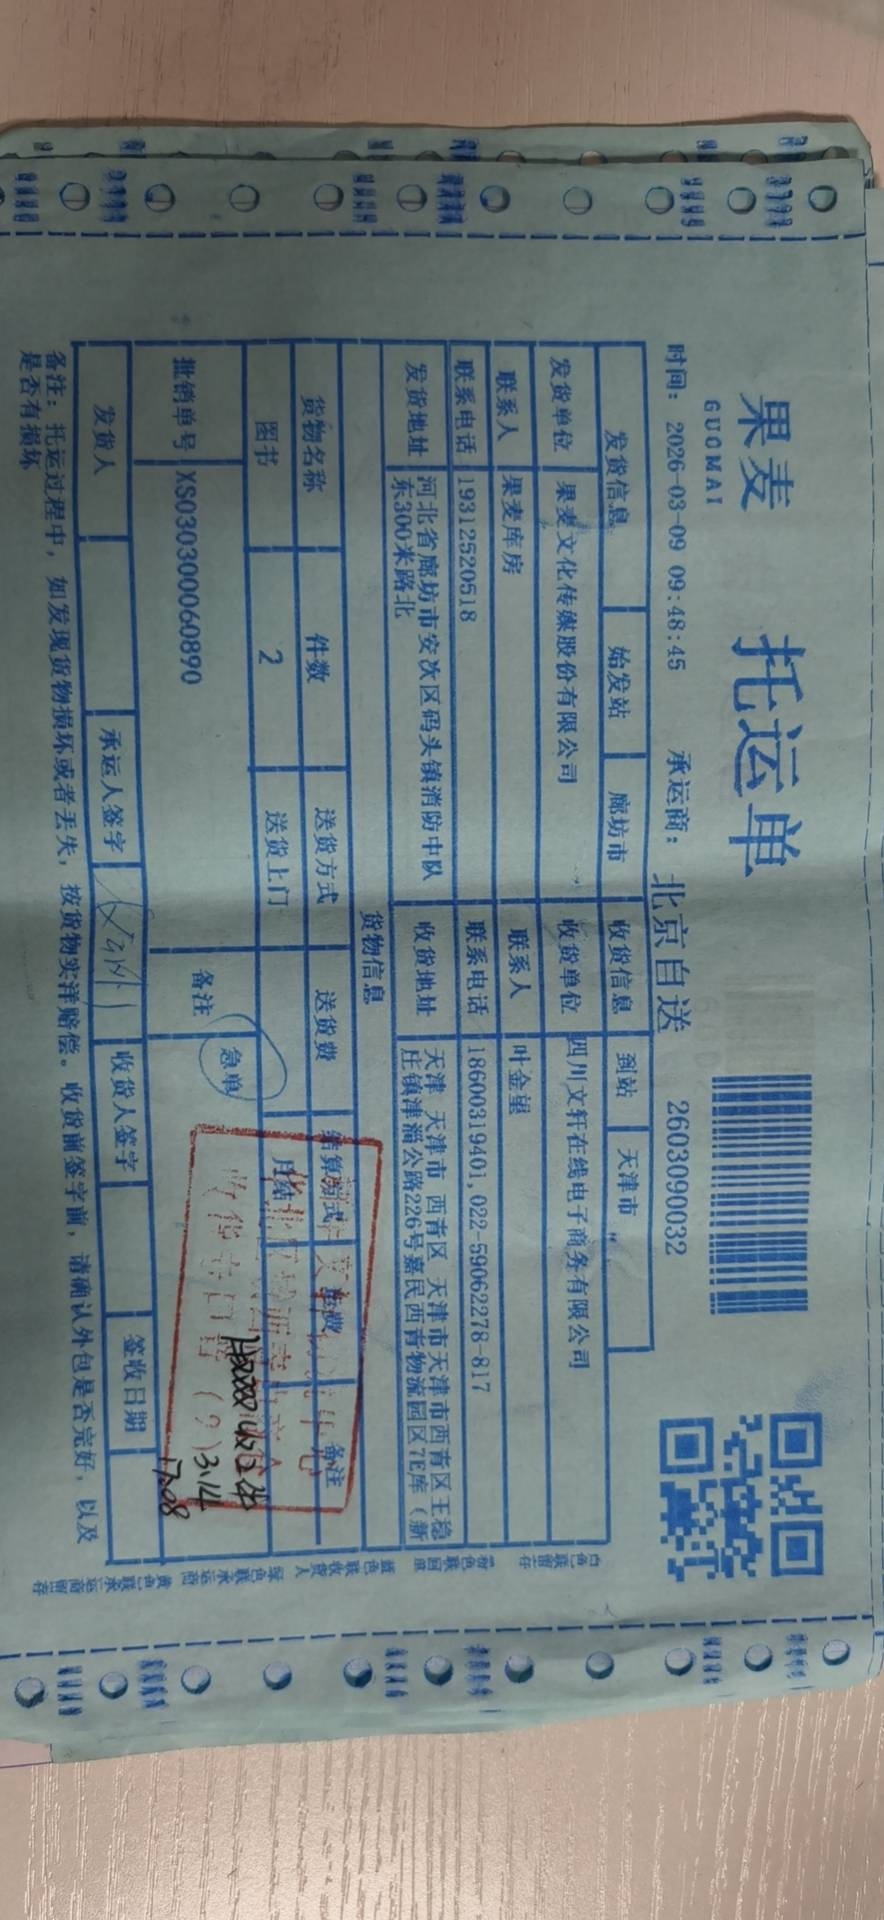 果麦
GUOMAI
托运单
时间： 2026-03-09 09:48:45 承运商： 北京自送 2603090032
发货信息 始发站 廊坊市 收货信息 到站 天津市
发货单位 果麦文化传媒股份有限公司 收货单位 四川文轩在线电子商务有限公司
联系人 果麦库房 联系人 叶金望
联系电话 19312520518 联系电话 18600319401,022-59062278-817
发货地址 河北省廊坊市安次区码头镇消防中队
东300米路北
收货地址 天津 天津市 西青区 天津市天津市西青区王稳
庄镇津淄公路226号嘉民西青物流园区7E库（新
货物信息
货物名称 件数 送货方式 送货费 结算方式 备注
图书 2 送货上门 月结
批销单号 XS030300060890 备注 急单
3.14
17:08
发货人 承运人签字 收货人签字 签收日期
备注：托运过程中，如发现货物损坏或者丢失，按货物实洋赔偿。收货前签字前，请确认外包是否完好，以及
是否有损坏